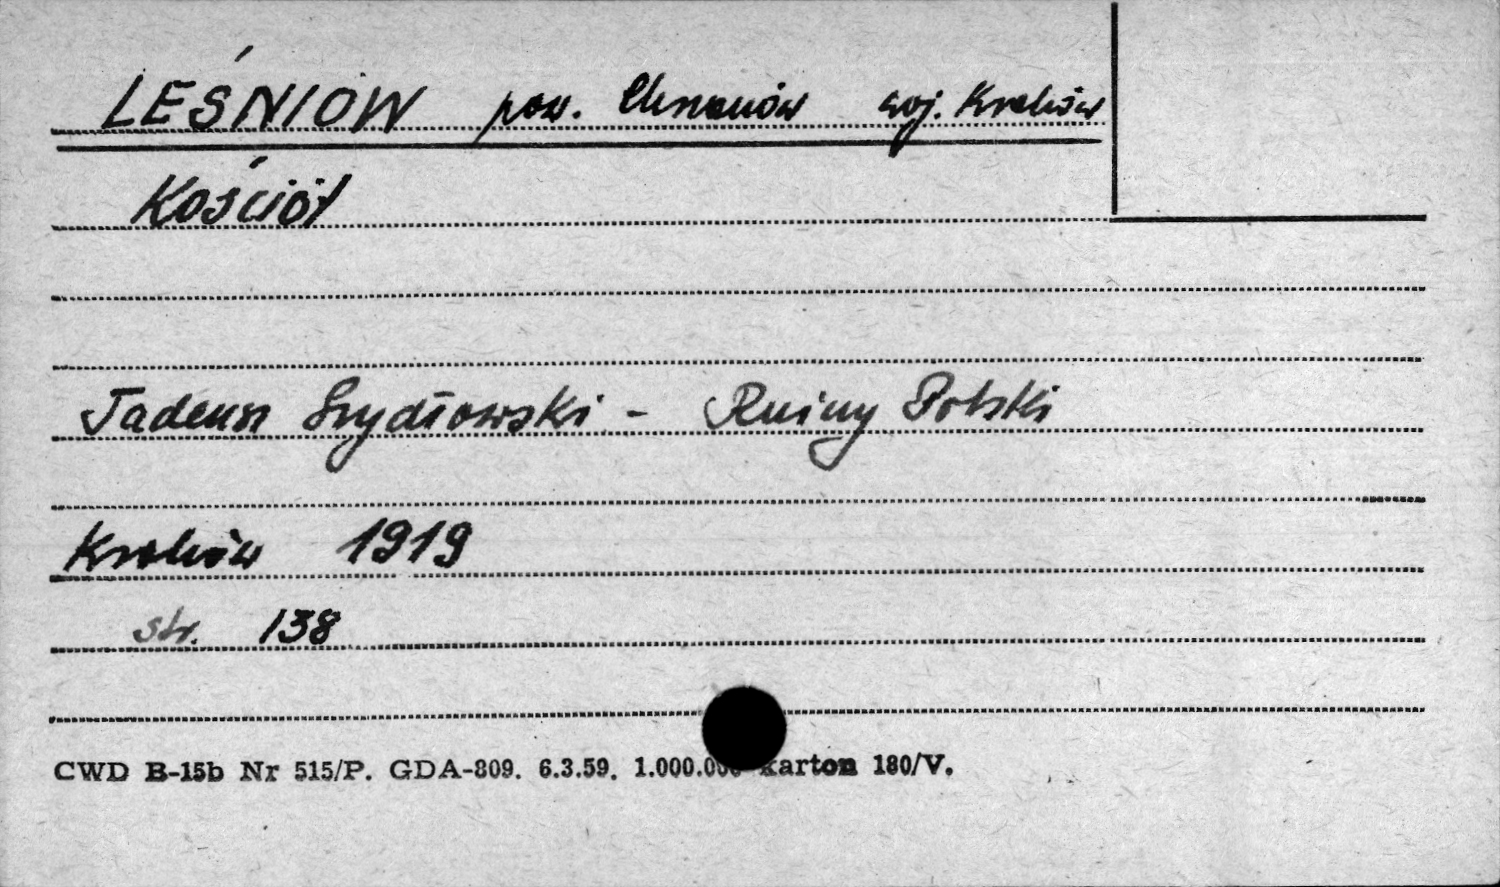 LEŚNIÓW pow. Chrzanów woj. Kraków
Kościół
Tadeusz Szydłowski - Ruiny Polski
Kraków 1919
str. 138
CWD B-15b Nr 515/P. GDA-809. 6.3.59. 1.000.000 karton 180/V.